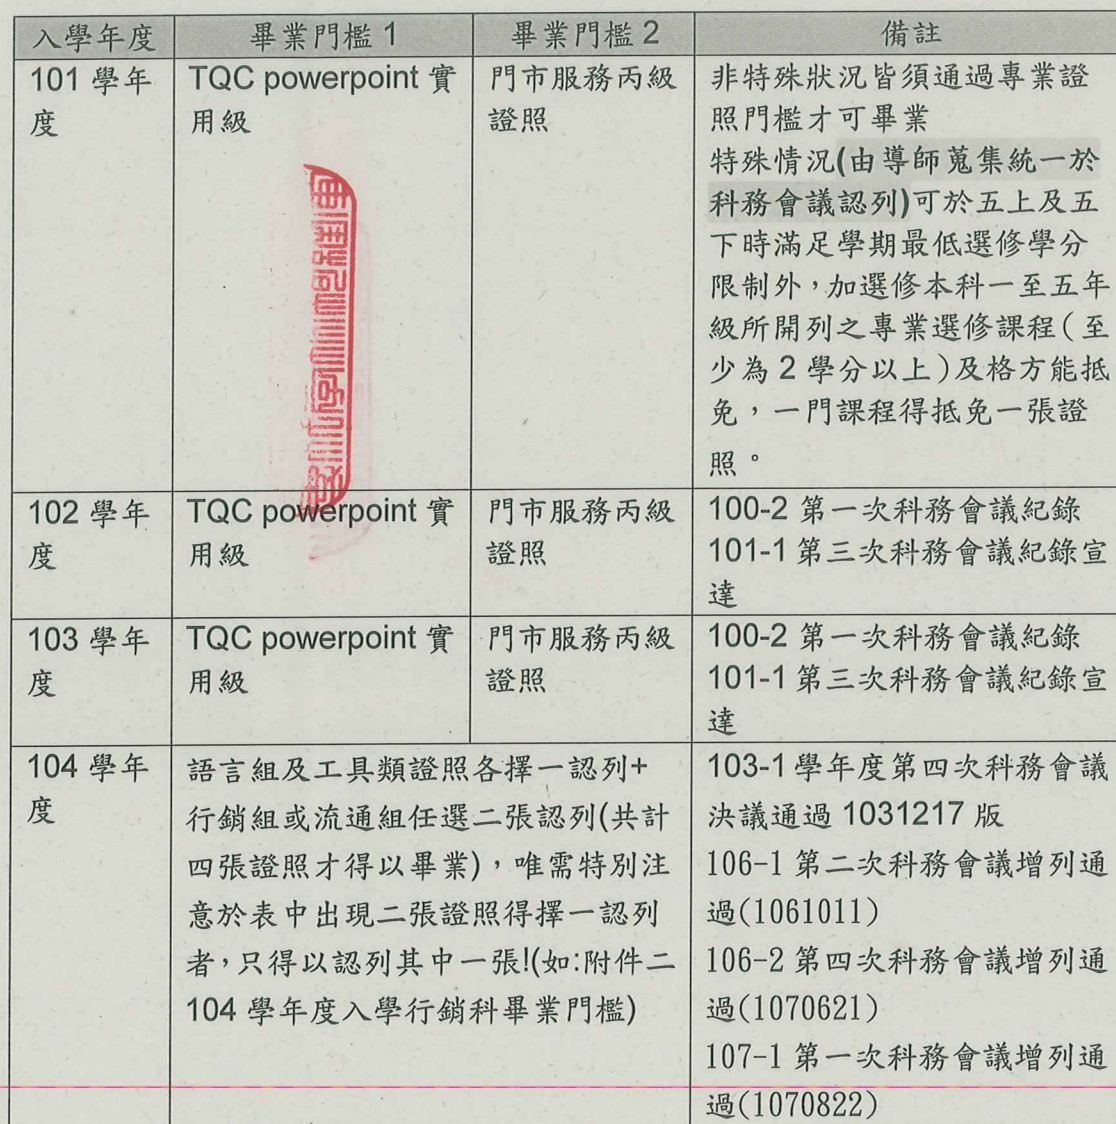 入學年度 畢業門檻 1 畢業門檻 2 備註
101 學年度 TQC powerpoint 實用級 門市服務丙級證照
非特殊狀況皆須通過專業證
照門檻才可畢業
特殊情況(由導師蒐集統一於
科務會議認列)可於五上及五
下時滿足學期最低選修學分
限制外，加選修本科一至五年
級所開列之專業選修課程(至
少為 2 學分以上)及格方能抵
免，一門課程得抵免一張證
照。
102 學年度 TQC powerpoint 實用級 門市服務丙級證照
100-2 第一次科務會議紀錄
101-1 第三次科務會議紀錄宣
達
103 學年度 TQC powerpoint 實用級 門市服務丙級證照
100-2 第一次科務會議紀錄
101-1 第三次科務會議紀錄宣
達
104 學年度
語言組及工具類證照各擇一認列+
行銷組或流通組任選二張認列(共計
四張證照才得以畢業)，唯需特別注
意於表中出現二張證照得擇一認列
者，只得以認列其中一張!(如:附件二
104 學年度入學行銷科畢業門檻)
103-1 學年度第四次科務會議
決議通過 1031217 版
106-1 第二次科務會議增列通
過(1061011)
106-2 第四次科務會議增列通
過(1070621)
107-1 第一次科務會議增列通
過(1070822)